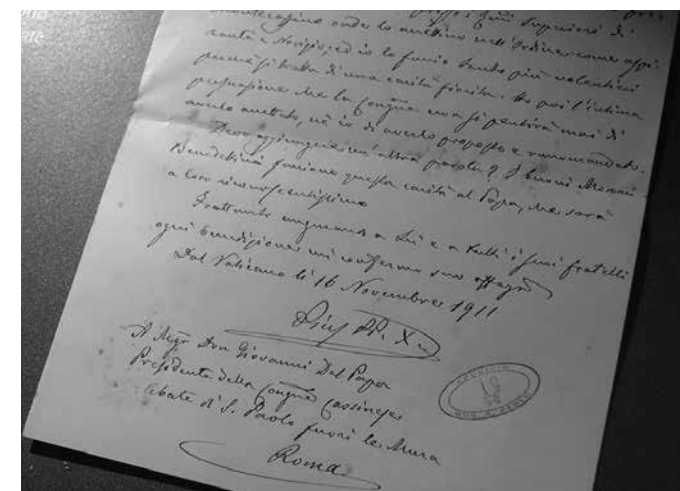 Montecassino onde lo ammettino nell'Ordine come aspi-
rante e Novizio; ed io lo faccio tanto più volentieri
perchè si tratta di una carità fiorita. Ho poi l'intima
persuasione che la Congñe non si pentirà mai di
averlo accettato, nè io di averlo proposto e raccomandato.
Devo aggiungere un'altra parola,
Benedettini facciano questa carità al Papa, che sarà
a loro riconoscentissimo
Frattanto auguriamo a Lei e a tutti i suoi fratelli
ogni benedizione mi confermo suo affmo
Dal Vaticano li 16 Novembre 1911
Pius PP. X.
A Mgr Don Giovanni Del Papa
Presidente della Congñe Cassinese
Abate di S. Paolo fuori le Mura
Roma